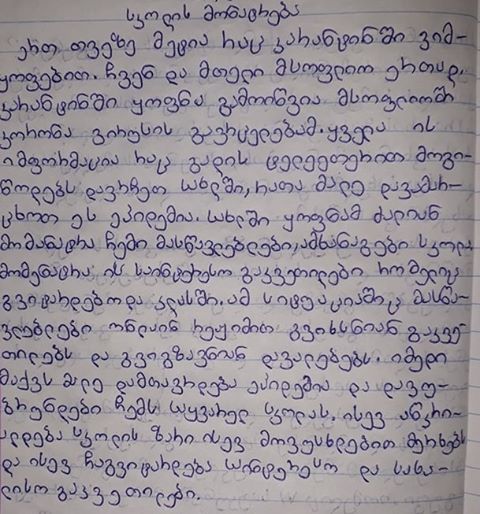 სკოლის მონატრება
ერთ თვეზე მეტია რაც კარანტინში ვიმ-
ყოფებით. ჩვენ და მთელი მსოფლიო ერთად.
კარანტინში ყოფნა გამოიწვია მსოფლიოში
კორონა ვირუსის გავრცელებამ. ყველა ის
იმფორმაცია რაც გადის ტელევიზორით მოგვი-
წოდებს დავრჩეთ სახლში, რათა მალე დავამარ-
ცხოთ ეს ეპიდემია. სახლში ყოფნამ ძალიან
მომანატრა ჩემი მასწავლებლები, ამხანაგები სკოლა
მომენატრა ის საინტერესო გაკვეთილები რომელიც
გვიტარდებოდა კლასში. ამ სიტუაციაშიც მასწა-
ვლებლები ონლაინ რეჟიმით გვიხსნიან გაკვე-
თილებს და გვიგზავნიან დავალებებს. იმედი
მაქვს მალე დამთავრდება ეპიდემია და დავუ-
ბრუნდები ჩემს საყვარელ სკოლას. ისევ აწკრი-
ალდება სკოლის ზარი ისევ მოვუსხდებით მერხებს
და ისევ ჩაგვიტარდება საინტერესო და სახა-
ლისო გაკვეთილები.